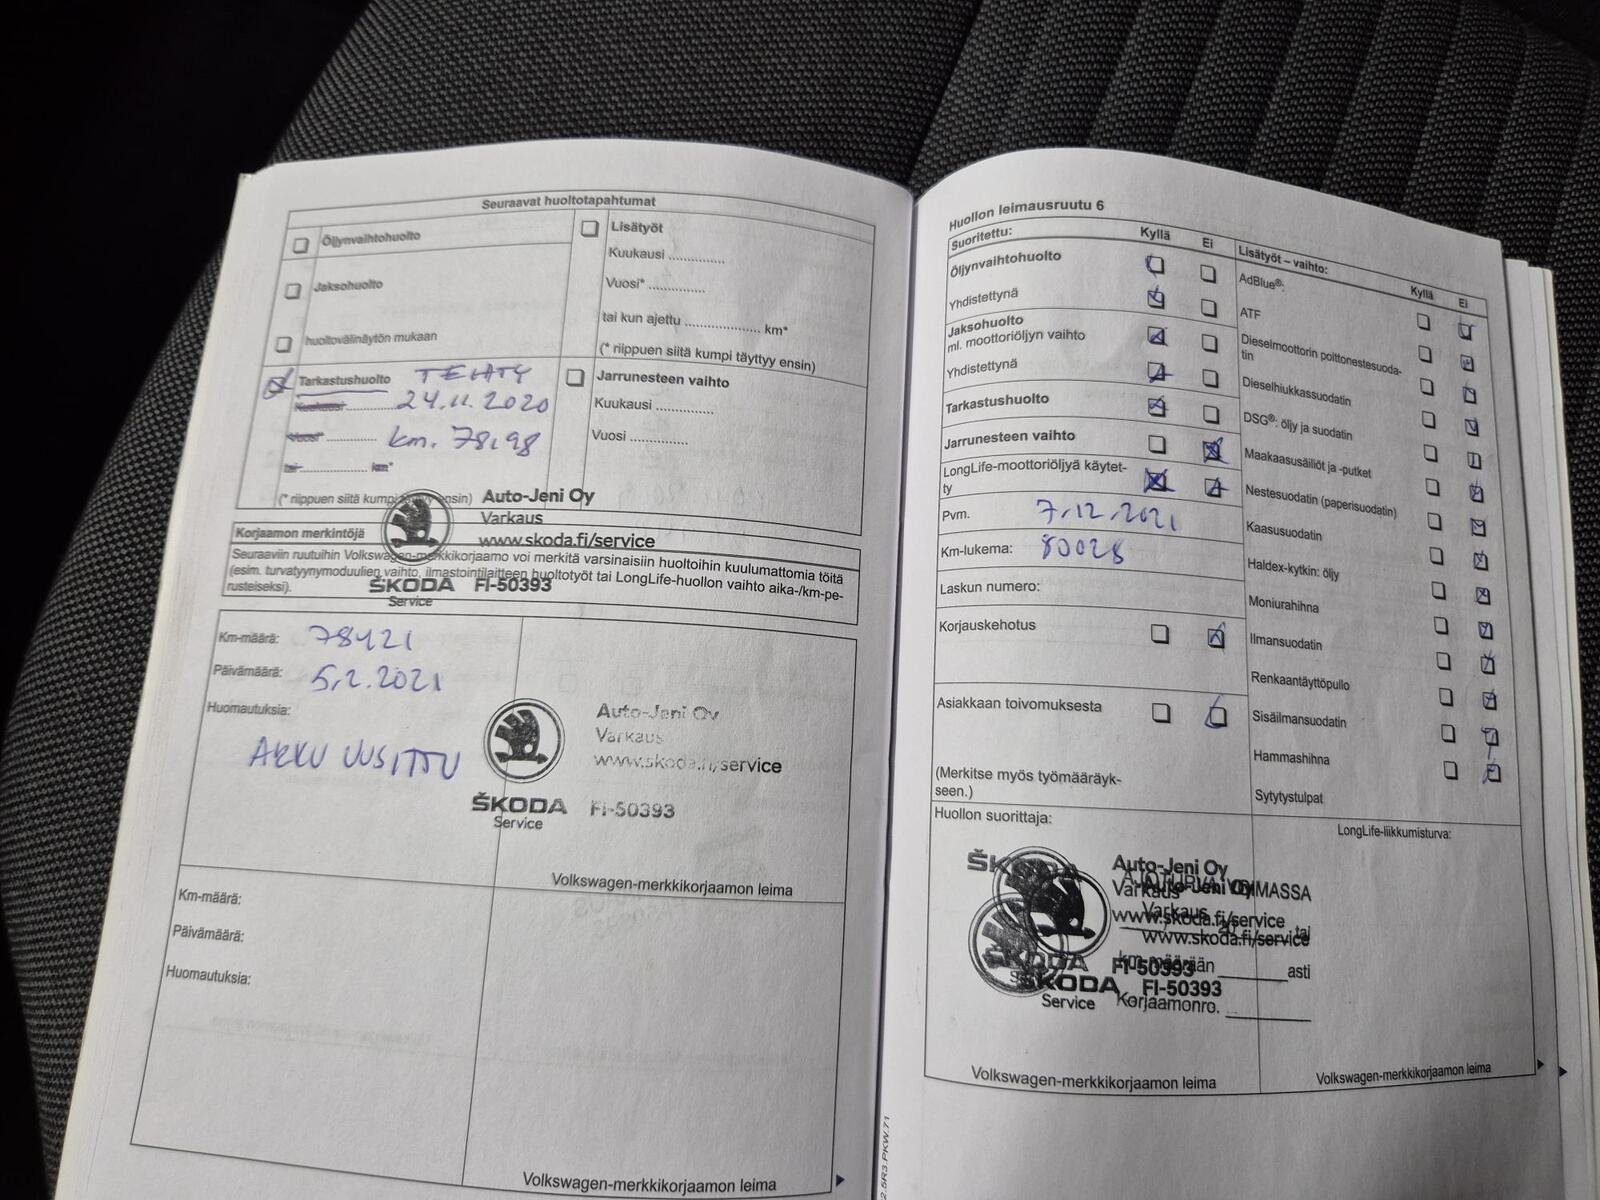 Seuraavat huoltotapahtumat
Öljynvaihtohuolto
Jaksohuolto
huoltovälinäytön mukaan
Lisätyöt
Kuukausi ..............
Vuosi* ..............
tai kun ajettu ................... km*
(* riippuen siitä kumpi täyttyy ensin)
Tarkastushuolto TEHTY
Kuukausi .............. 24.11.2020
Vuosi* .............. km. 78198
tai ................ km*
(* riippuen siitä kumpi täyttyy ensin)
Jarrunesteen vaihto
Kuukausi ..............
Vuosi ..............
Auto-Jeni Oy
Varkaus
www.skoda.fi/service
ŠKODA FI-50393
Service
Korjaamon merkintöjä
Seuraaviin ruutuihin Volkswagen-merkkikorjaamo voi merkitä varsinaisiin huoltoihin kuulumattomia töitä
(esim. turvatyynymoduulien vaihto, ilmastointilaitteen huoltotyöt tai LongLife-huollon vaihto aika-/km-pe-
rusteiseksi).
Km-määrä: 78421
Päivämäärä: 5.2.2021
Huomautuksia:
AKKU UUSITTU
Auto-Jeni Oy
Varkaus
www.skoda.fi/service
ŠKODA FI-50393
Service
Volkswagen-merkkikorjaamon leima
Km-määrä:
Päivämäärä:
Huomautuksia:
Volkswagen-merkkikorjaamon leima
Huollon leimausruutu 6
Suoritettu: Kyllä Ei
Öljynvaihtohuolto
Yhdistettynä
Jaksohuolto
ml. moottoriöljyn vaihto
Yhdistettynä
Tarkastushuolto
Jarrunesteen vaihto
LongLife-moottoriöljyä käytet-
ty
Pvm. 7.12.2021
Km-lukema: 80028
Laskun numero:
Korjauskehotus
Asiakkaan toivomuksesta
(Merkitse myös työmääräyk-
seen.)
Lisätyöt – vaihto: Kyllä Ei
AdBlue®:
ATF
Dieselmoottorin polttonestesuoda-
tin
Dieselhiukkassuodatin
DSG®: öljy ja suodatin
Maakaasusäiliöt ja -putket
Nestesuodatin (paperisuodatin)
Kaasusuodatin
Haldex-kytkin: öljy
Moniurahihna
Ilmansuodatin
Renkaantäyttöpullo
Sisäilmansuodatin
Hammashihna
Sytytystulpat
Huollon suorittaja:
LongLife-liikkumisturva:
ŠKODA
Auto-Jeni Oy
Varkaus
www.skoda.fi/service
FI-50393
Auto-Jeni Oy
Varkaus
www.skoda.fi/service
ŠKODA FI-50393
Service
tai
asti
Korjaamonro.
Volkswagen-merkkikorjaamon leima
Volkswagen-merkkikorjaamon leima
2.5R3.PKW.71